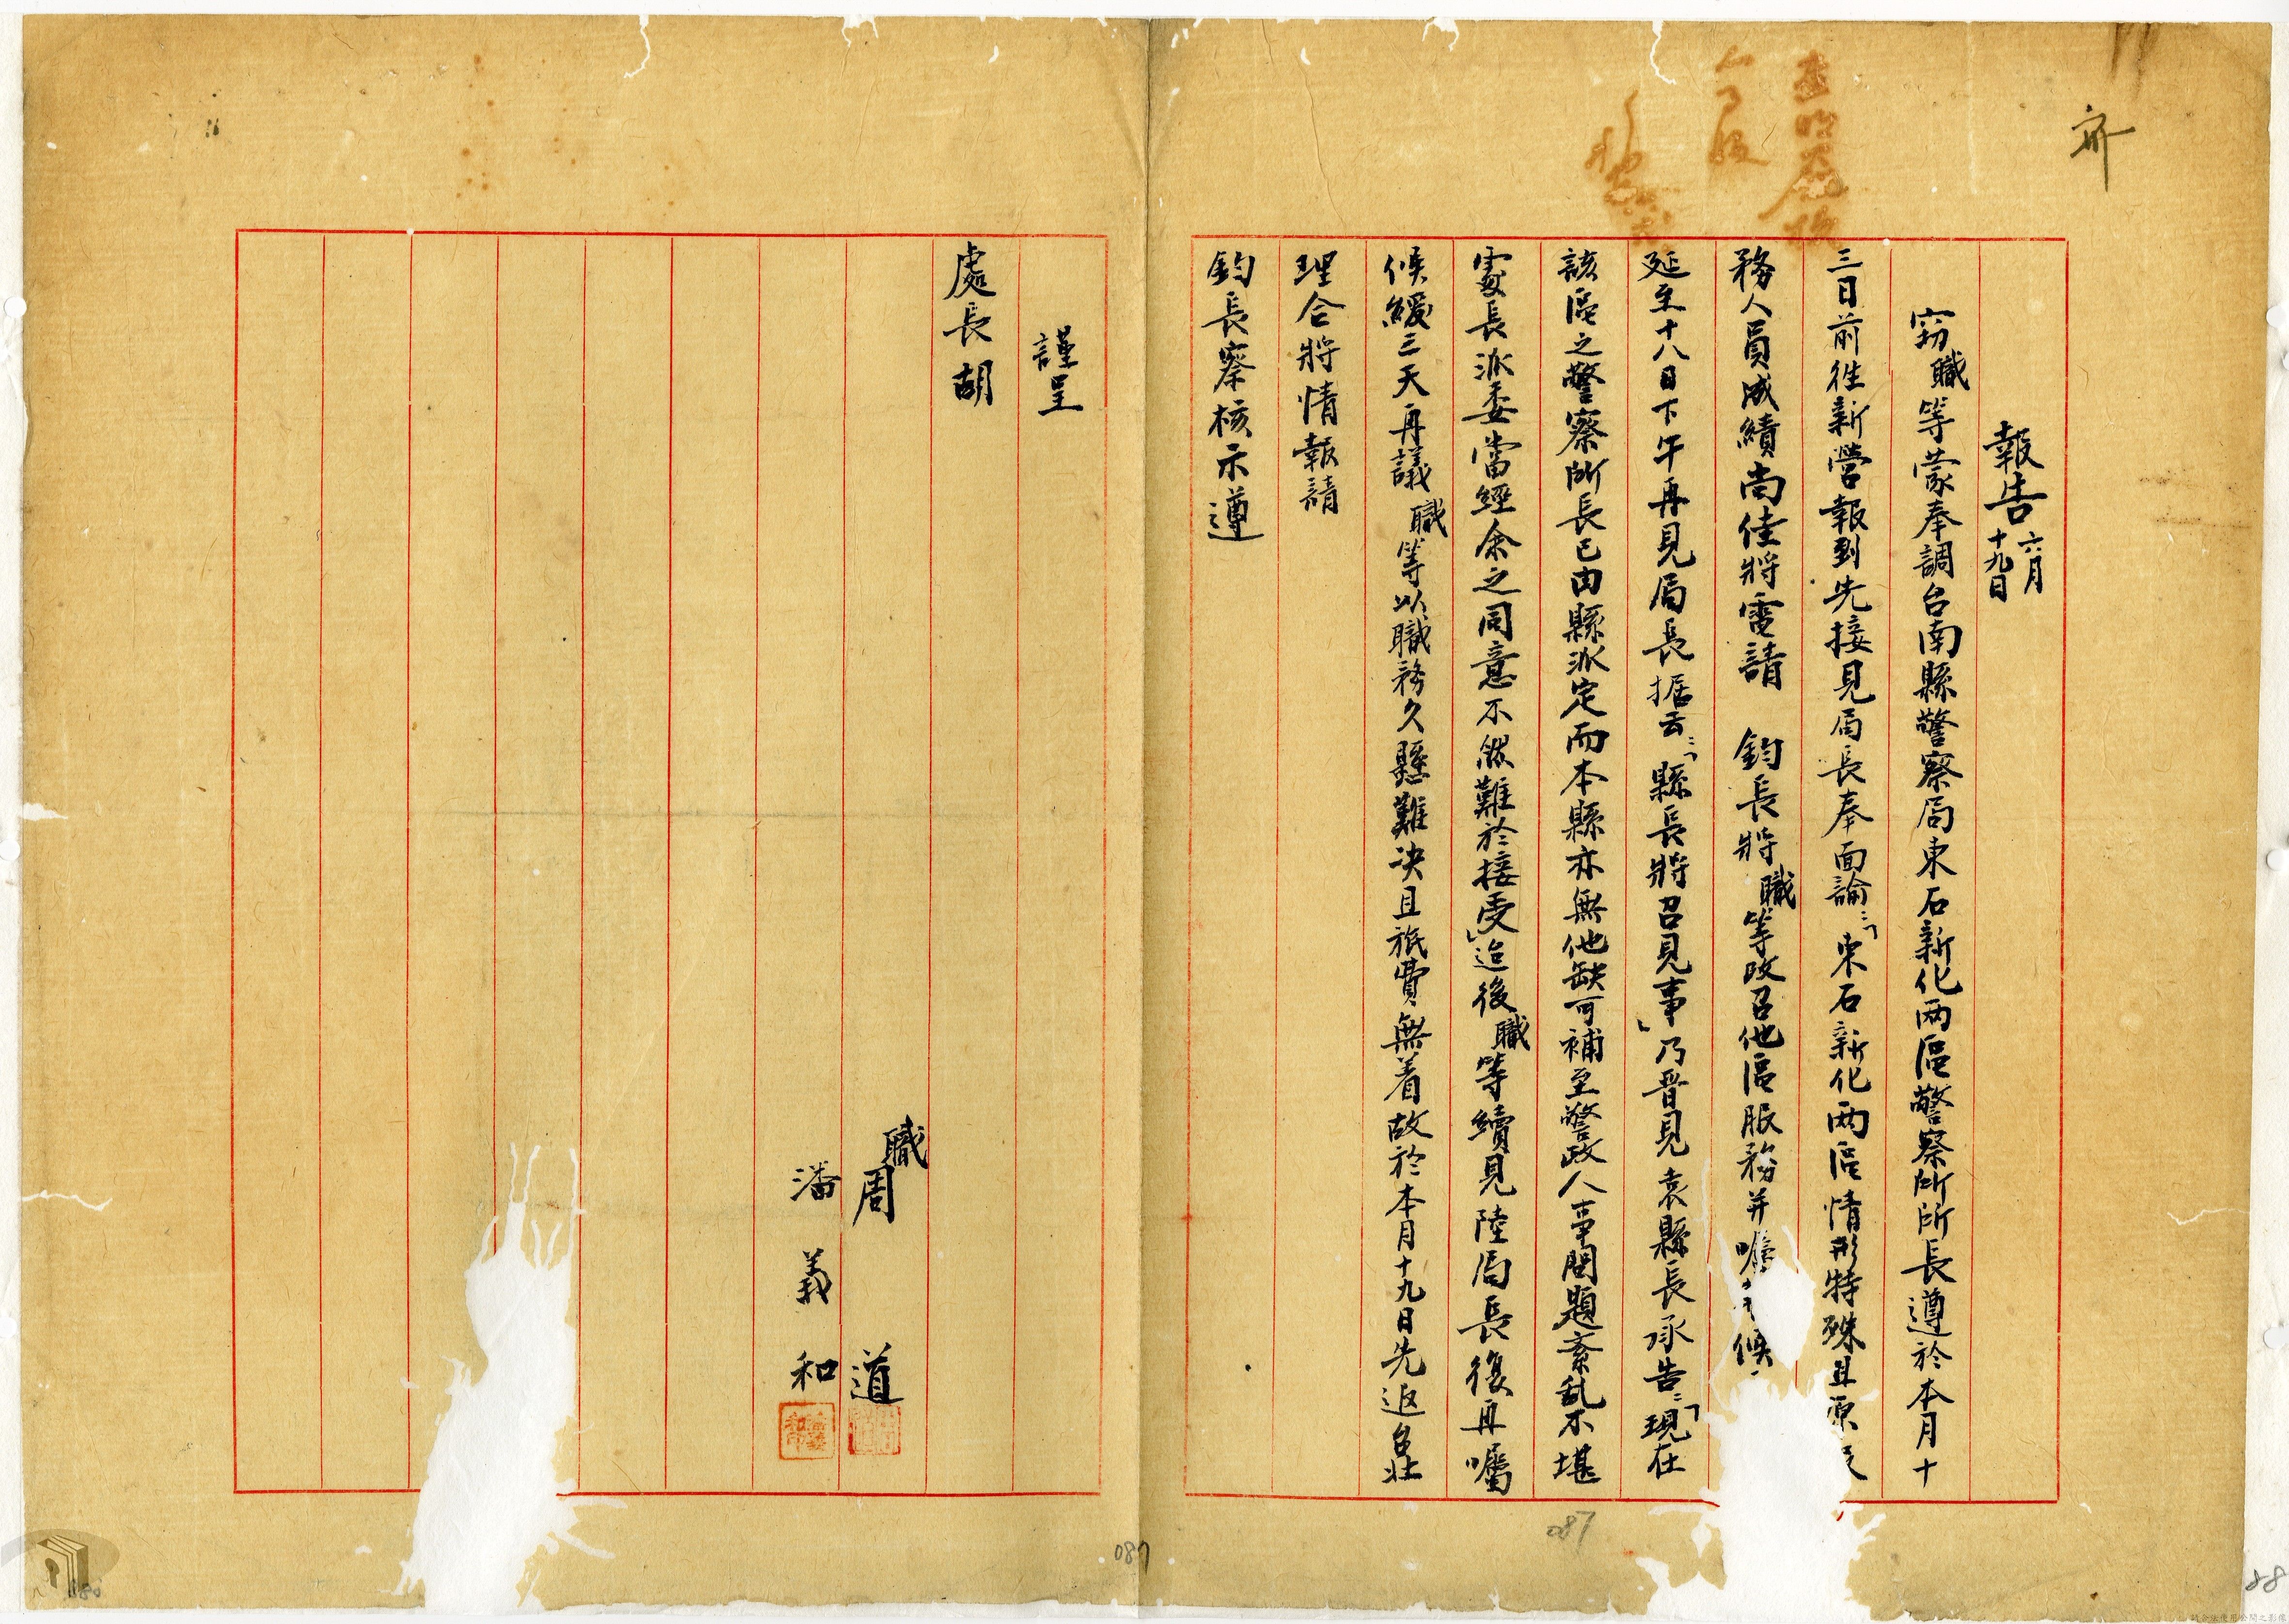 報告 六月十九日
窃職等蒙奉調台南縣警察局東石新化两區警察所所長遵於本月十
三日前往新營報到先接見局長奉面諭：「東石新化两區情形特殊且原
務人員成績尚佳將電請　鈞長將職等改召他區服務并囑候
延至十八日下午再見局長据云：「縣長將召見事」乃晋見袁縣長承告：「現在
該區之警察所長已由縣派定而本縣亦無他缺可補至警政人事問題紊乱不堪
處長派委當經余之同意不然難於接受」迨後職等續見陸局長復再囑
候緩三天再議職等以職務久懸難决且旅費無着故於本月十九日先返
理合將情報請
鈞長察核示遵
謹呈
處長胡
職周　道
潘義和
087
087
88